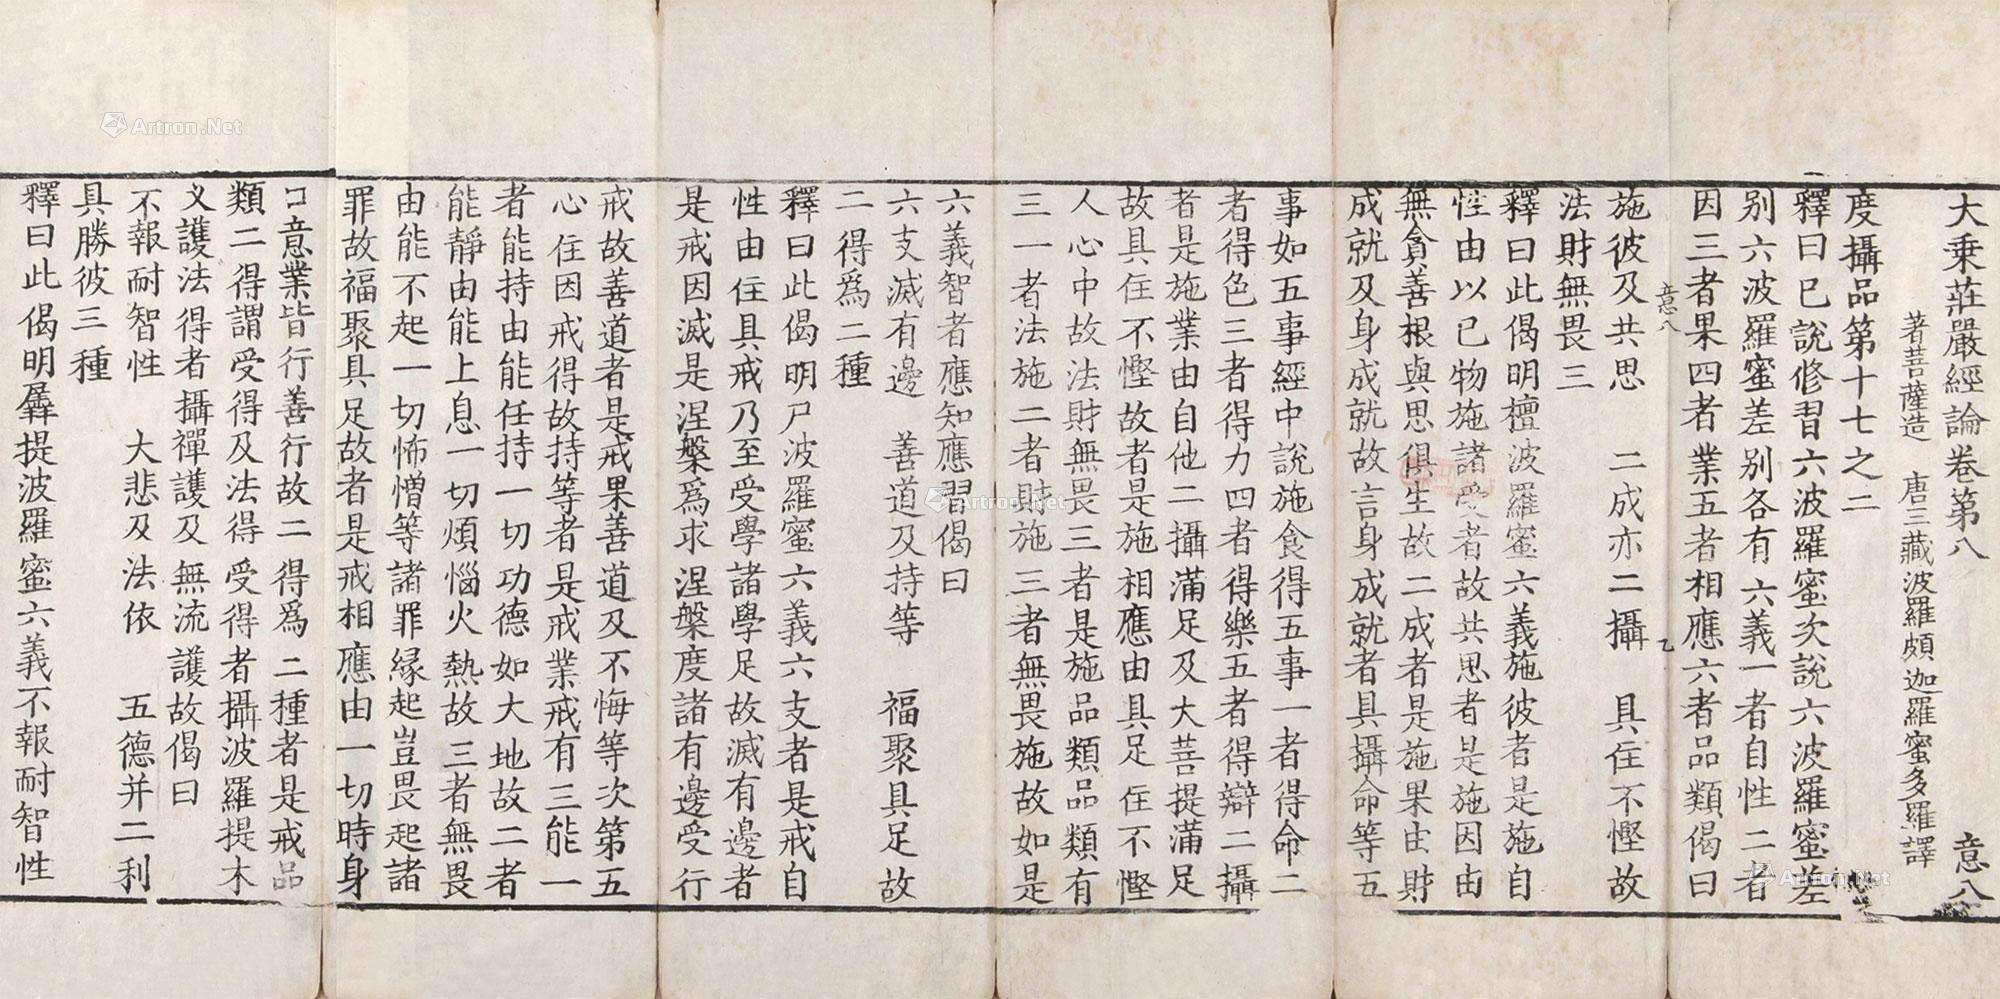 大乗莊嚴經論卷第八 意八
著菩薩造 唐三藏波羅頗迦羅蜜多羅譯
度攝品第十七之二
釋曰已說修習六波羅蜜次說六波羅蜜差
别六波羅蜜差别各有六義一者自性二者
因三者果四者業五者相應六者品類偈曰
意八 乙
施彼及共思 二成亦二攝 具住不慳故
法財無畏三
釋曰此偈明檀波羅蜜六義施彼者是施自
性由以己物施諸受者故共思者是施因由
無貪善根與思俱生故二成者是施果由財
成就及身成就故言身成就者具攝命等五
事如五事經中說施食得五事一者得命二
者得色三者得力四者得樂五者得辯二攝
者是施業由自他二攝滿足及大菩提滿足
故具住不慳故者是施相應由具足住不慳
人心中故法財無畏三者是施品類品類有
三一者法施二者財施三者無畏施故如是
六義智者應知應習偈曰
六支滅有邊 善道及持等 福聚具足故
二得爲二種
釋曰此偈明尸波羅蜜六義六支者是戒自
性由住具戒乃至受學諸學足故滅有邊者
是戒因滅是涅槃爲求涅槃度諸有邊受行
戒故善道者是戒果善道及不悔等次第五
心住因戒得故持等者是戒業戒有三能一
者能持由能任持一切功德如大地故二者
能靜由能上息一切煩惱火熱故三者無畏
由能不起一切怖憎等諸罪緣起豈畏起諸
罪故福聚具足故者是戒相應由一切時身
口意業皆行善行故二得爲二種者是戒品
類二得謂受得及法得受得者攝波羅提木
义護法得者攝禪護及無流護故偈曰
不報耐智性 大悲及法依 五德并二利
具勝彼三種
釋曰此偈明羼提波羅蜜六義不報耐智性
Artron.Net
Artron.Net
Artron.Net